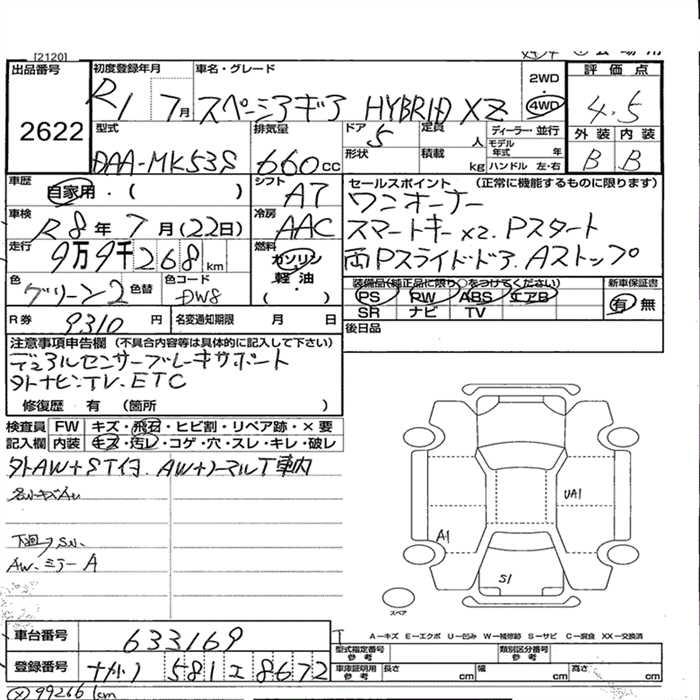 [2120]
出品番号
2622
初度登録年月
R1 7月
車名・グレード
スペーシアギア HYBRID XZ
2WD
・
4WD
評価点
4.5
外装 内装
B B
型式
DAA-MK53S
排気量
660cc
ドア
5
形状
定員
人
積載
kg
ディーラー・並行
モデル年式 年
ハンドル 左・右
車歴
自家用・( )
シフト
A7
冷房
AAC
車検
R8年7月(22日)
走行
9万9千268km
燃料
ガソリン
軽・油
( )
色
グリーン2
色替
色コード
DW8
R券
9310円
名変通知期限 月 日
セールスポイント (正常に機能するものに限ります)
ワンオーナー
スマートキーx2. Pスタート
両Pスライドドア. Aストップ
装備品(純正品に限り○をつけてください)
PS PW ABS エアB
SR ナビ TV
新車保証書
有 無
後日品
注意事項申告欄 (不具合内容等は具体的に記入して下さい)
デュアルセンサーブレーキサポート
外ナビ.TV.ETC
修復歴 有 (箇所 )
検査員記入欄
FW キズ・飛石・ヒビ割・リペア跡・×要
内装 キズ・汚レ・コゲ・穴・スレ・キレ・破レ
外AW+STイ寸. AW+ノーマルT車内
AW. ミラーA
A1
UA1
S1
スペア
A-キズ E-エクボ U-凹み W-補修跡 S-サビ C-腐食 XX-交換済
車台番号
633169
登録番号
ナガノ 581 エ 8672
型式指定番号
参考
類別区分番号
参考
車庫証明用
参考
長さ cm
幅 cm
高さ cm
(×) 99266 km